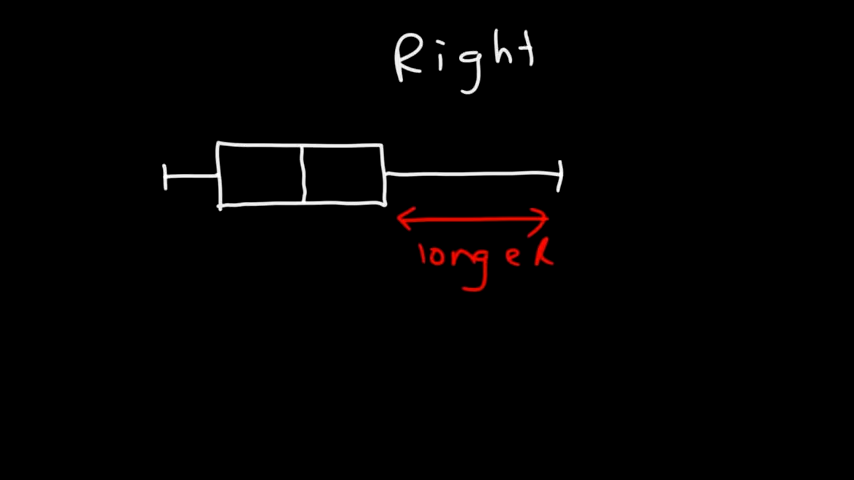 Right
longer